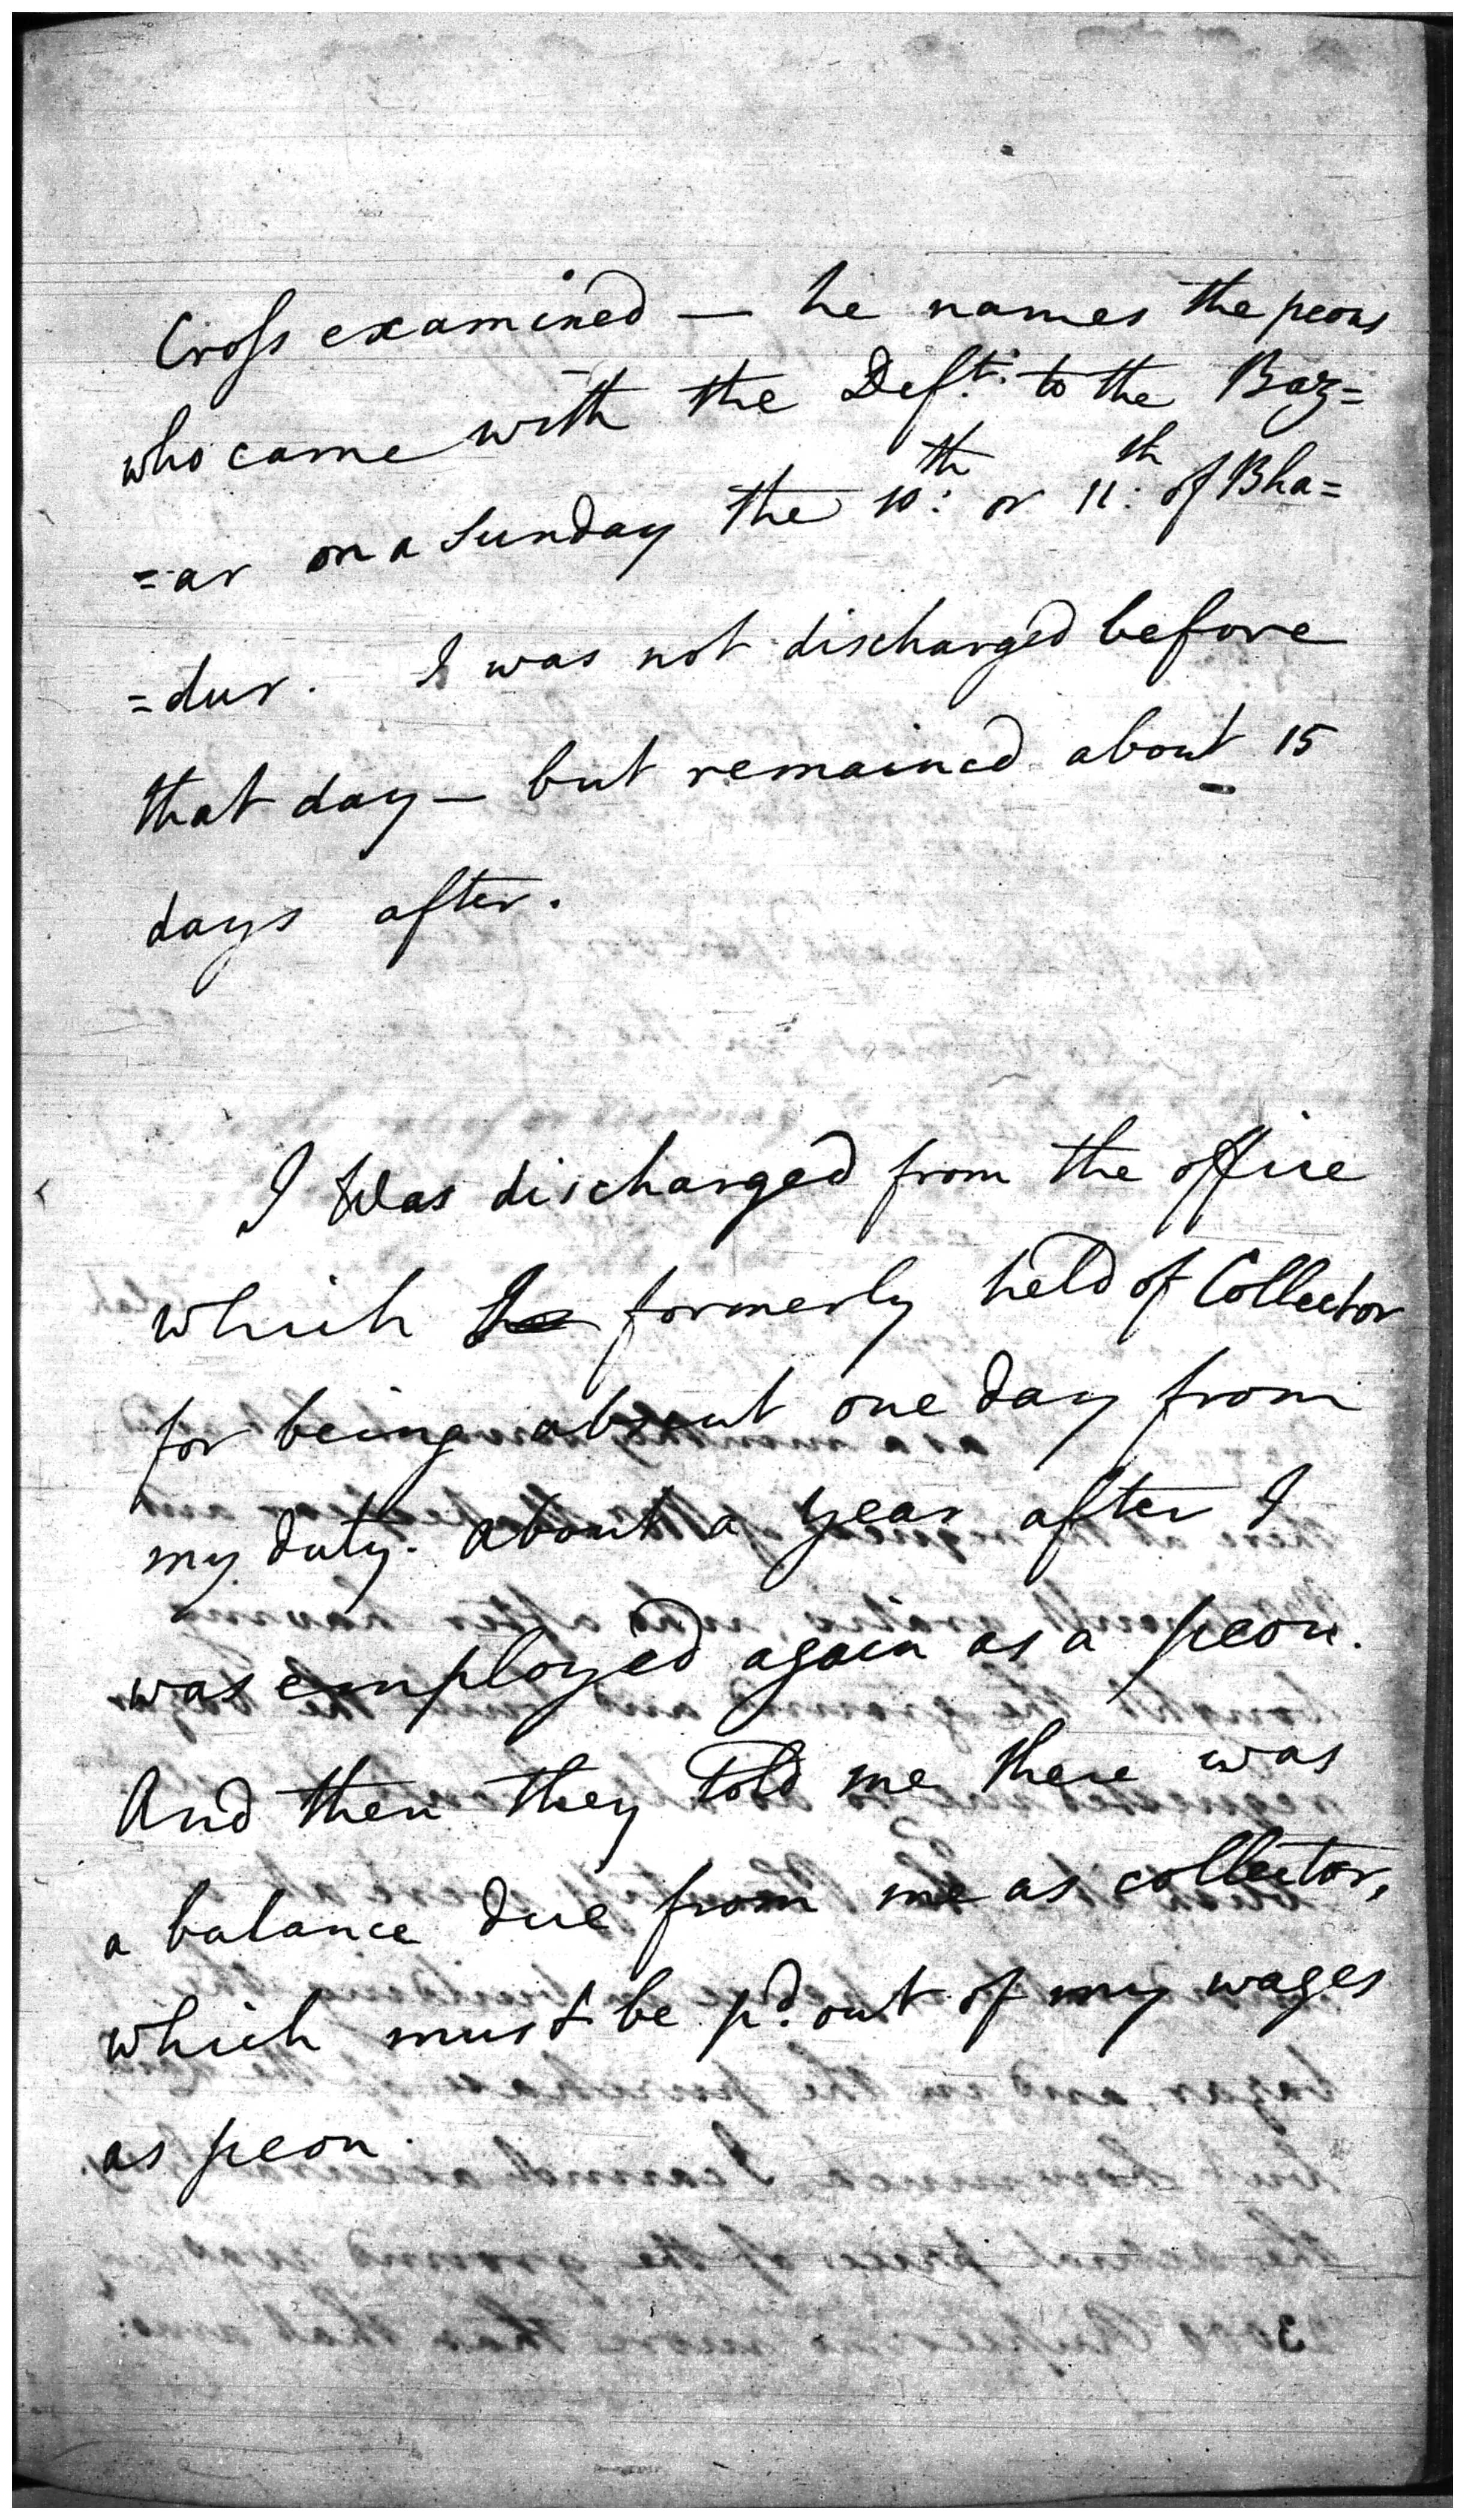 Cross examined — he names the peons
who came with the Deft. to the Baz=
=ar on a Sunday the 10th: or 11th: of Bha=
=dur. I was not discharged before
that day — but remained about 15
days after.
I was discharged from the office
which I formerly held of Collector
for being absent one day from
my duty. About a year after I
was employed again as a peon.
And then they told me there was
a balance due from me as collector,
which must be pd. out of my wages
as peon.